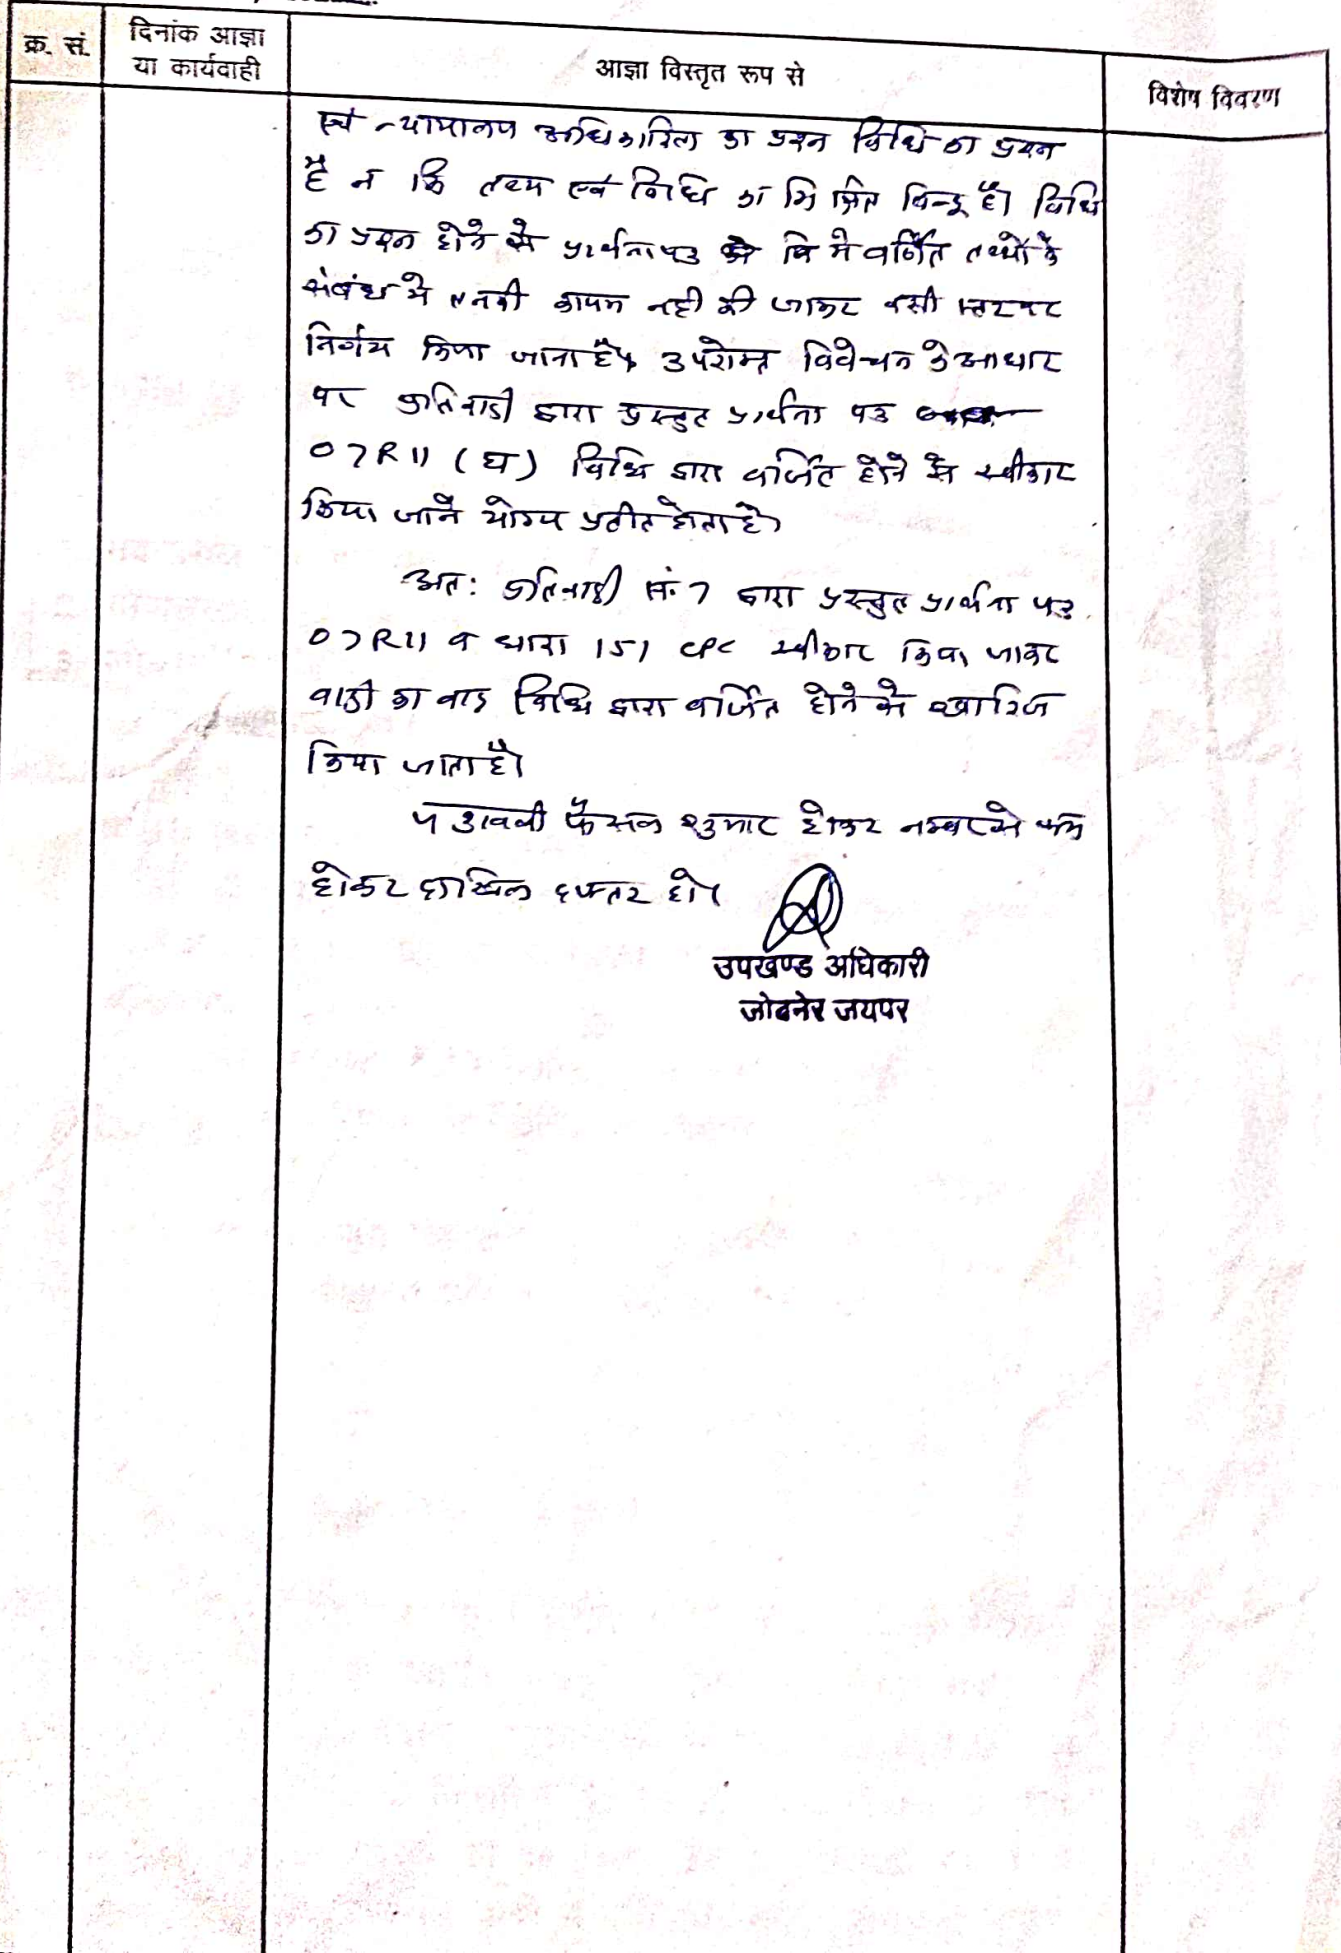 क्र. सं.
दिनांक आज्ञा
या कार्यवाही
आज्ञा विस्तृत रूप से
विशेष विवरण
एवं न्यायालय अधिकारिता का प्रश्न विधि का प्रश्न
है न कि तथ्य एवं विधि का मिश्रित बिन्दू है। विधि
का प्रश्न होने से प्रार्थना पत्र में वर्णित तथ्यों के
संबंध में तनकी कायम नही की जाकर इसी स्तर पर
निर्णय किया जाना है। उपरोक्त विवेचन के आधार
पर प्रतिवादी द्वारा प्रस्तुत प्रार्थना पत्र
O7R11 (घ) विधि द्वारा वर्जित होने से स्वीकार
किया जाने योग्य प्रतीत होता है।
अत: प्रतिवादी सं. 7 द्वारा प्रस्तुत प्रार्थना पत्र
O7R11 व धारा 151 CPC स्वीकार किया जाकर
वादी का वाद विधि द्वारा वर्जित होने से खारिज
किया जाता है।
पत्रावली फैसल शुमार होकर नम्बर से कम
होकर दाखिल दफ्तर हो।
उपखण्ड अधिकारी
जोबनेर जयपर